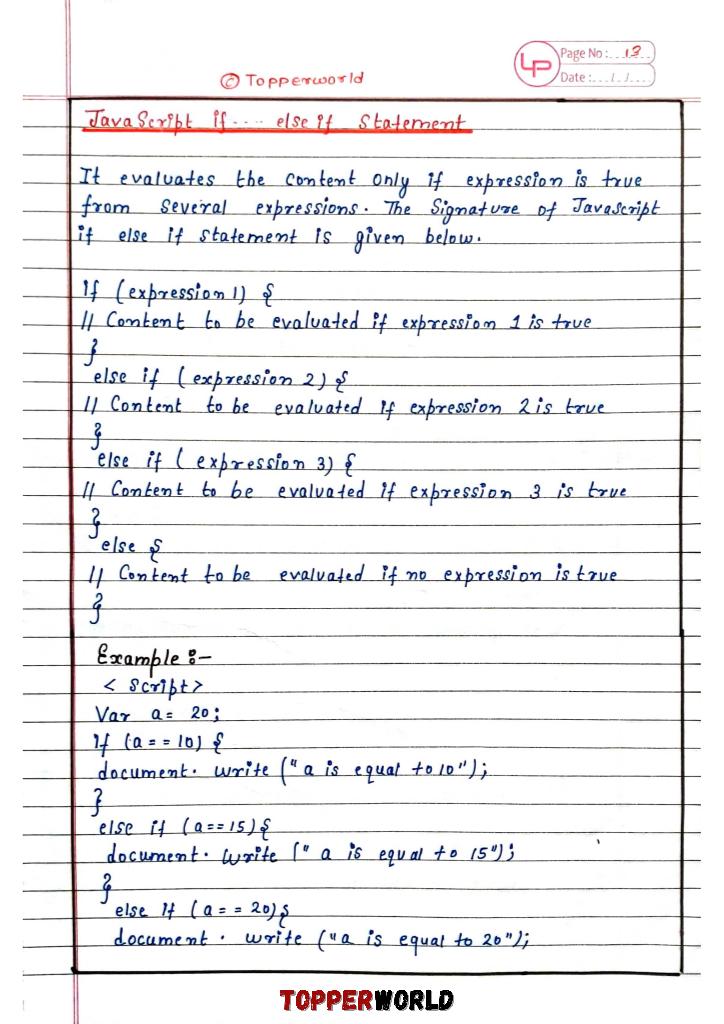 LP
Page No: 13
Date: / /
© Topperworld
JavaScript if .... else if Statement
It evaluates the Content Only if expression is true
from Several expressions. The Signature of JavaScript
if else if statement is given below.
if (expression 1) {
// Content to be evaluated if expression 1 is true
}
else if (expression 2) {
// Content to be evaluated if expression 2 is true
}
else if (expression 3) {
// Content to be evaluated if expression 3 is true
}
else {
// Content to be evaluated if no expression is true
}
Example :-
< Script>
Var a= 20;
If (a==10) {
document. write ("a is equal to 10");
}
else if (a==15){
document. write (" a is equal to 15");
}
else If (a == 20){
document . write ("a is equal to 20");
TOPPERWORLD